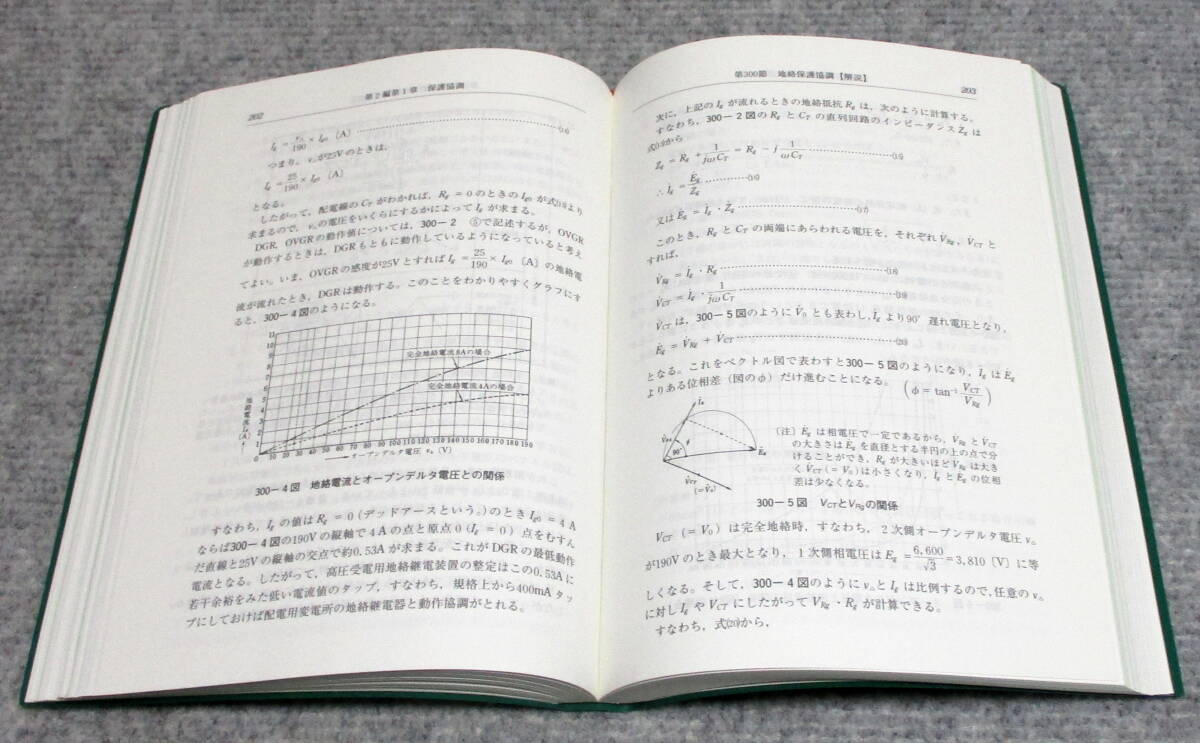 202
第2編第1章 保護協調
Ig = v△/190 × Ig0 〔A〕
つまり, v△が25Vのときは,
Ig = 25/190 × Ig0 〔A〕
となる。
したがって, 配電線のCTがわかれば, Rg = 0 のときの Ig0 が式(13)より
求まるので, v△の電圧をいくらにするかによって Ig が求まる。
DGR, OVGRの動作値については, 300-2 ⑤で記述するが, OVGR
が動作するときは, DGRもともに動作しているようになっていると考え
てよい。いま, OVGRの感度が25Vとすれば Ig = 25/190 × Ig0 〔A〕の地絡電
流が流れたとき, DGRは動作する。このことをわかりやすくグラフにす
ると, 300-4図のようになる。
11
10
9
8
7
6
5
4
3
2
1
地絡電流Ig〔A〕
完全地絡電流8Aの場合
完全地絡電流4Aの場合
0 10 20 30 40 50 60 70 80 90 100 110 120 130 140 150 160 170 180 190
オープンデルタ電圧 v△〔V〕
300-4図 地絡電流とオープンデルタ電圧との関係
すなわち, Ig の値は Rg = 0 (デッドアースという。)のとき Ig0 = 4 A
ならば300-4図の190Vの縦軸で4Aの点と原点0 (Ig = 0) 点をむすん
だ直線と25Vの縦軸の交点で約0.53Aが求まる。これがDGRの最低動作
電流となる。したがって, 高圧受電用地絡継電装置の整定はこの0.53Aに
若干余裕をみた低い電流値のタップ, すなわち, 規格上から400mAタッ
プにしておけば配電用変電所の地絡継電器と動作協調がとれる。
第300節 地絡保護協調【解説】
203
次に, 上記の Ig が流れるときの地絡抵抗 Rg は, 次のように計算する。
すなわち, 300-2図の Rg と CT の直列回路のインピーダンス Żg は
式(13)から
Żg = Rg + 1/jωCT = Rg − j 1/ωCT ……(15)
∴ İg = Ėg/Żg ……(16)
又は Ėg = İg・Żg ……(17)
このとき, Rg と CT の両端にあらわれる電圧を, それぞれ V̇Rg, V̇CT と
すれば,
V̇Rg = İg・Rg ……(18)
V̇CT = İg・1/jωCT ……(19)
V̇CT は, 300-5図のように V̇0 とも表わし, İg より90°遅れ電圧となり,
Ėg = V̇Rg + V̇CT ……(20)
となる。これをベクトル図で表わすと300-5図のようになり, İg は Ėg
よりある位相差 (図のφ) だけ進むことになる。 (φ = tan⁻¹ VCT/VRg)
İg
V̇Rg
φ
90°
Ėg
V̇CT
(= V̇0)
(注) Ėg は相電圧で一定であるから, V̇Rg と V̇CT
の大きさは Ėg を直径とする半円の上の点で分
けることができ, Rg が大きいほど V̇Rg は大き
く V̇CT (= V̇0) は小さくなり, İg と Ėg の位相
差は少なくなる。
300-5図 VCTとVRgの関係
VCT (= V0) は完全地絡時, すなわち, 2次側オープンデルタ電圧 v△
が190Vのとき最大となり, 1次側相電圧は Eg = 6,600/√3 = 3,810〔V〕に等
しくなる。そして, 300-4図のように v△と Ig は比例するので, 任意の v△
に対し Ig や VCT にしたがって VRg・Rg が計算できる。
すなわち, 式(20)から,